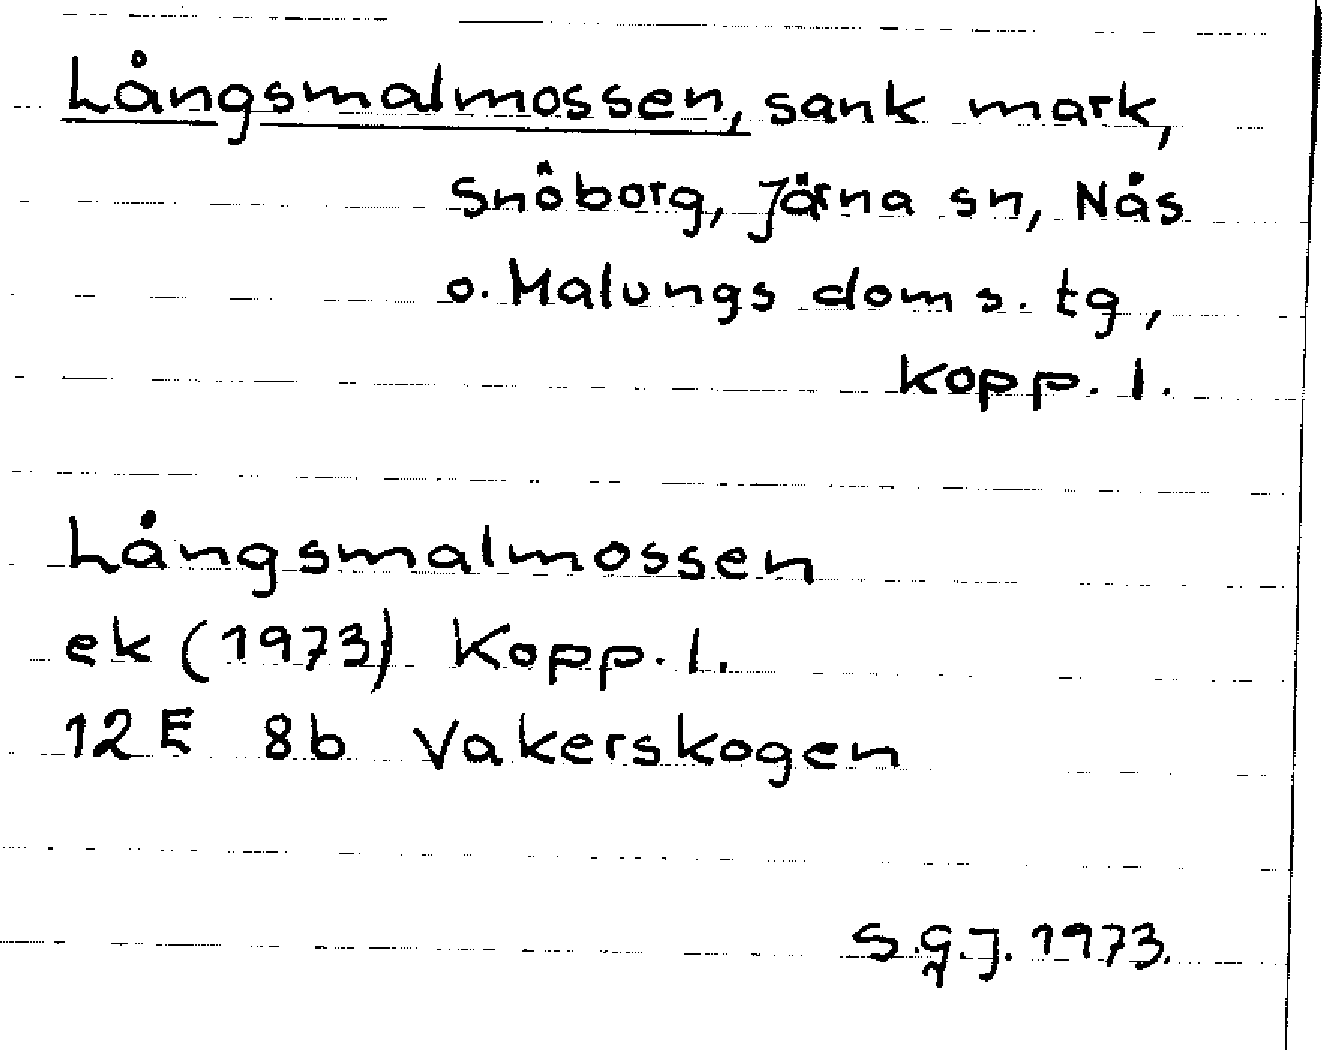 Långsmalmossen, sank mark,
Snöborg, Järna sn, Nås
o. Malungs doms. tg,
Kopp. l.
Långsmalmossen
ek (1973) Kopp. l.
12 E 8b Vakerskogen
S.G.J. 1973.